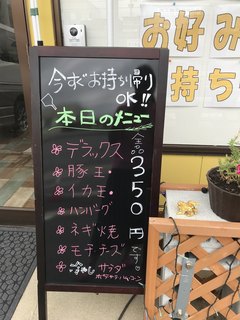 今すぐお持ち帰り
OK!!
本日のメニュー
デラックス
豚玉・
イカ玉・
ハンバーグ
ネギ焼
モチチーズ
サラダ
全品350円です
お好み
持ち